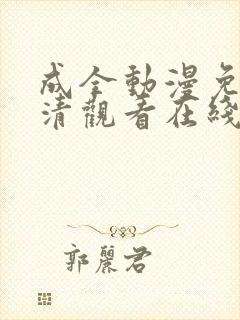 成全動漫免
清觀看在綫
郭麗君